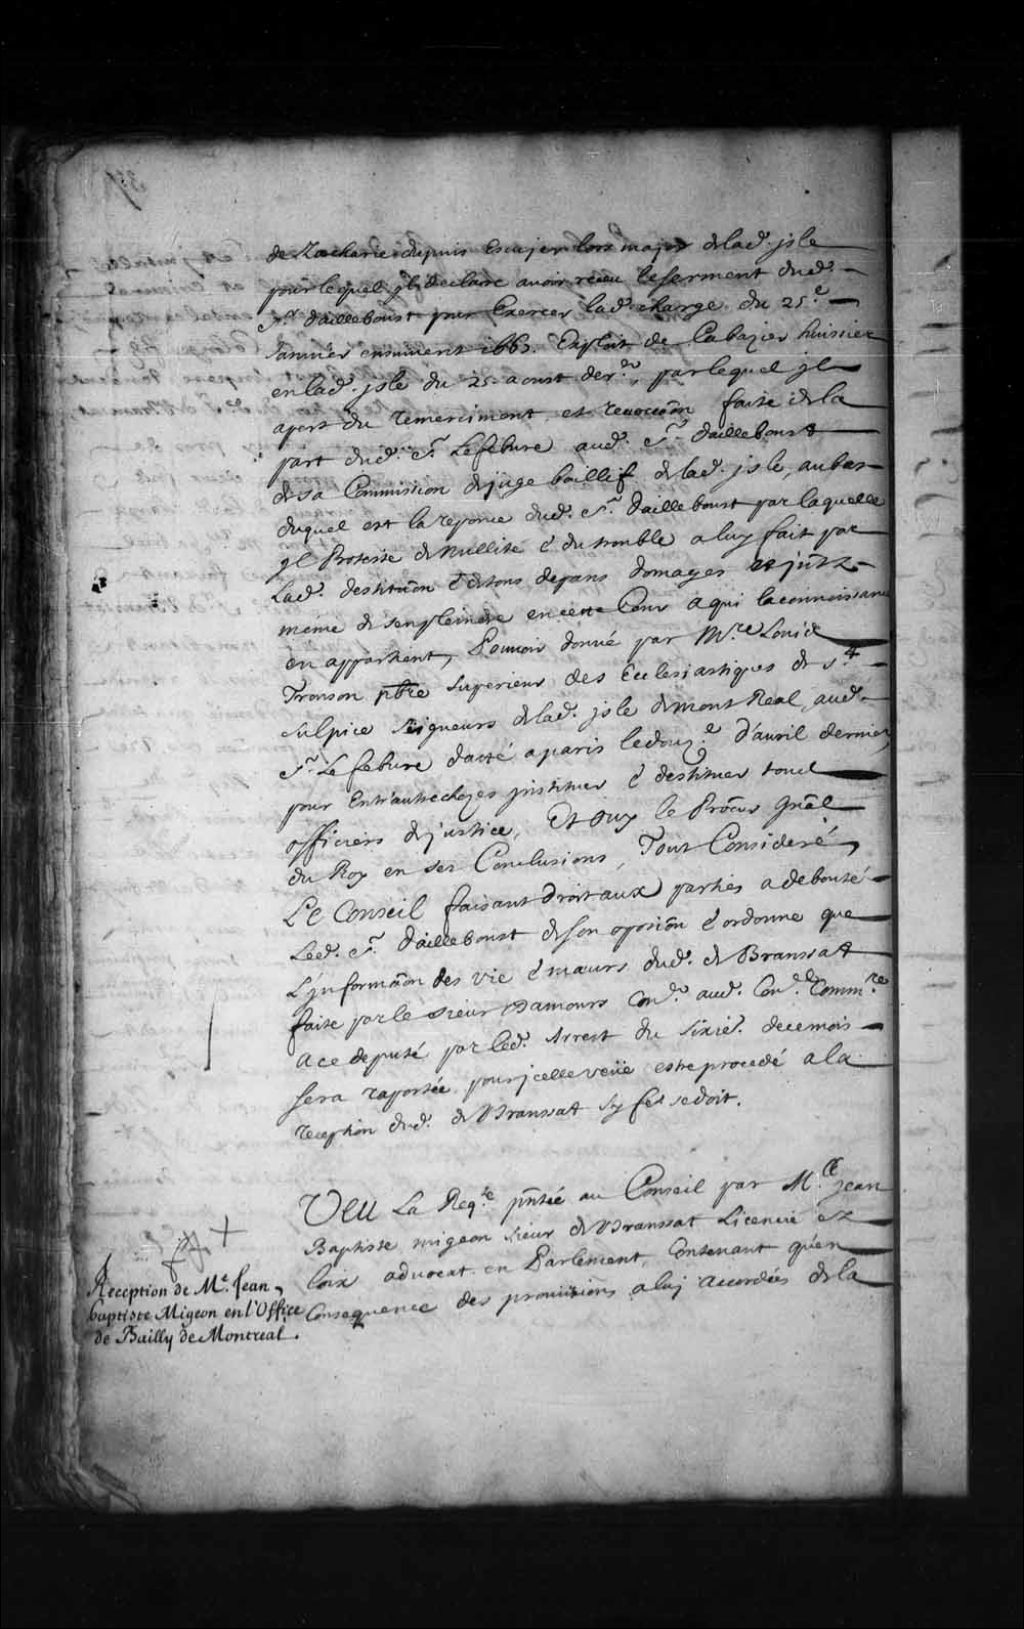 de Zacharie dupuis Escuyer lors major de lad. jsle
pour lequel jl declare avoir receu le serment dud.
Sr. dailleboust pour Exercer lad. charge du 25e.
Januier ensuiuent 1667. Exploit de Cabazier huissier
en lad. jsle du 25. aoust dernr., par lequel jl
apert du remerciment et reuocaōn faite de la
part dud. Sr. Lefebure aud. Sr. dailleboust
de sa Commission de juge baillif de lad. jsle, au bas
duquel est la reponce dud. Sr. dailleboust par laquelle
jl Proteste de Nullité & du trouble a luy fait par
Lad. destituōn & de tous depans domages et jntz
méme de sen pleindre en cette Cour a qui la connoissance
en appartient, Pouuoir donné par Mre. Louis
Tronson pbre Superieur des Ecclesiastiques de St.
Sulpice Seigneurs de lad. jsle de mont Real, aud.
Sr. Lefebure datté a paris le douze. d'auril dernier
pour Entr'autre chozes jnstituer & destituer tous
officiers de justice, Et Ouy le Procur gnāl
du Roy en ses Conclusions, Tout Consideré,
Le Conseil faisant droit aux parties a debouté
Led. Sr. dailleboust de son oposiōn & ordonne que
L'jnformaōn des vie & mœurs dud. de Branssat
faite par le sieur Damours Conr. aud. Conel. Commre.
a ce deputé par led. Arrest du sixie. de ce mois
sera raportée pour jcelle veüe estre procedé a la
reception dud. de Branssat Sy fer se doit.
Veu La Reqte. pn̄tée au Conseil par Me. jean
Baptiste migeon sieur de Branssat Licencié ex
loix aduocat en Parlement, Contenant qu'en
Consequence des prouisions a luy accordées de la
Reception de Me. Jean
baptiste Migeon en l'Office
de Bailly de Montreal.